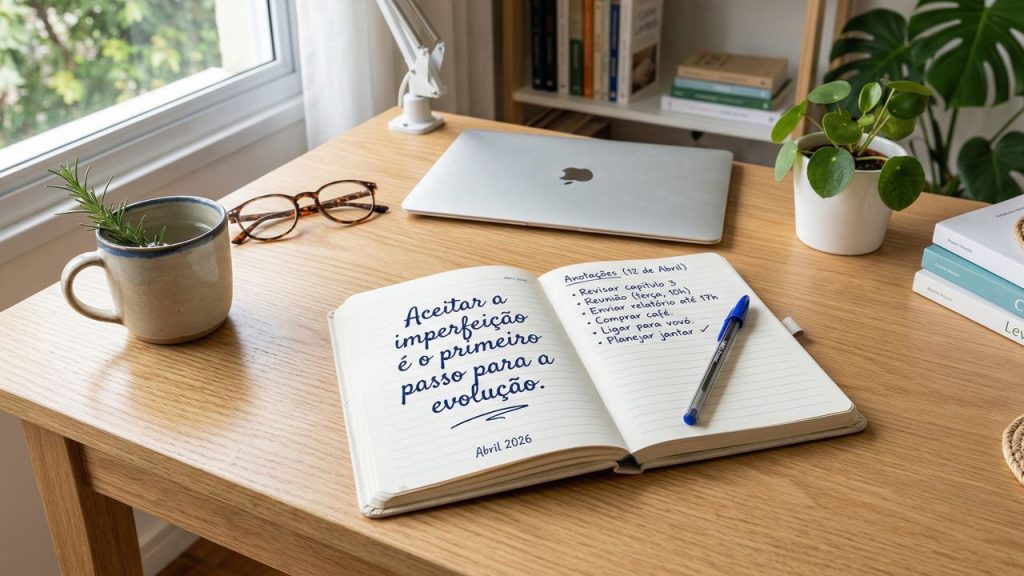 Abril 2026
Aceitar a
imperfeição
é o primeiro
passo para a
evolução.
Abril 2026
Anotações (12 de Abril)
• Revisar capítulo 3
• Reunião (terça, 10h)
• Enviar relatório até 17h
• Comprar café.
• Ligar para vovó.
• Planejar jantar ✓